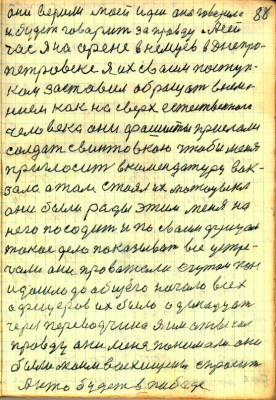 они верили моей идеи она говорила 28
и будет говорить за правду Я сей
час я на арене в немцев в Днепро-
петровске я их своим поступ-
ком заставил обращат внима-
нием как на сверх естественного
человека они фашисты прислали
солдат свинтовкою чтобы меня
пригласит в коменндатуру вок-
зала а там стоял их мотоцикл
они были рады этим меня на
него посадит и по своим друзям
такое дело показыват все устре-
чали они провожали
и дошло до общего начало всех
офицеров их было одинадцат
через переводчика я им отвечал
правду они меня понимали они
были моим восхищены спросит
А кто будет в победе